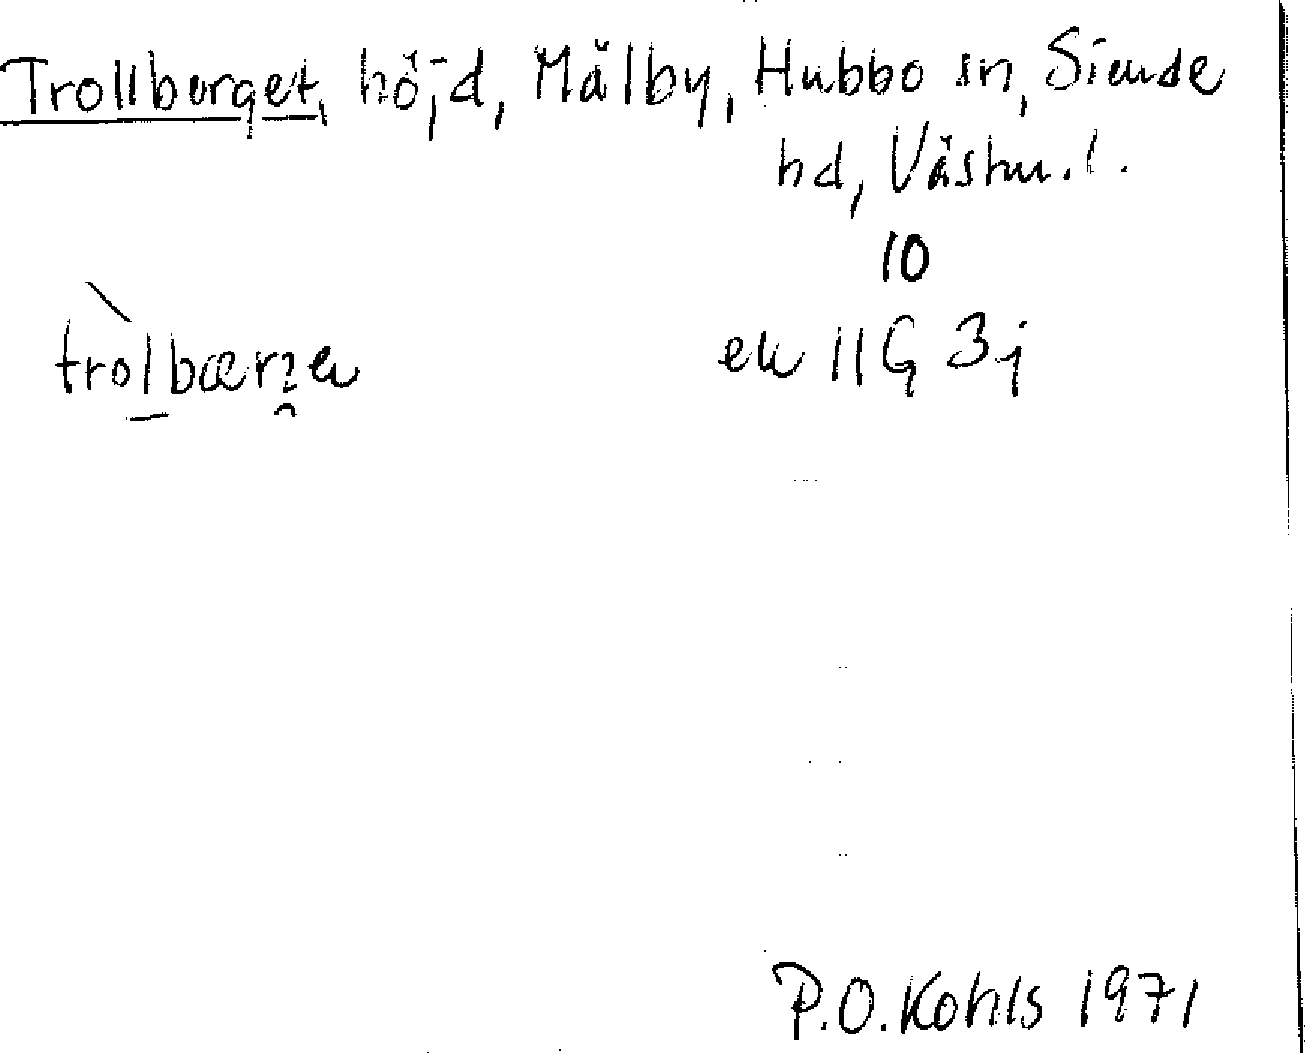 Trollberget, höjd, Målby, Hubbo sn, Siende
hd, Västm. l.
10
ek 11G 3j
P.O. Kohls 1971